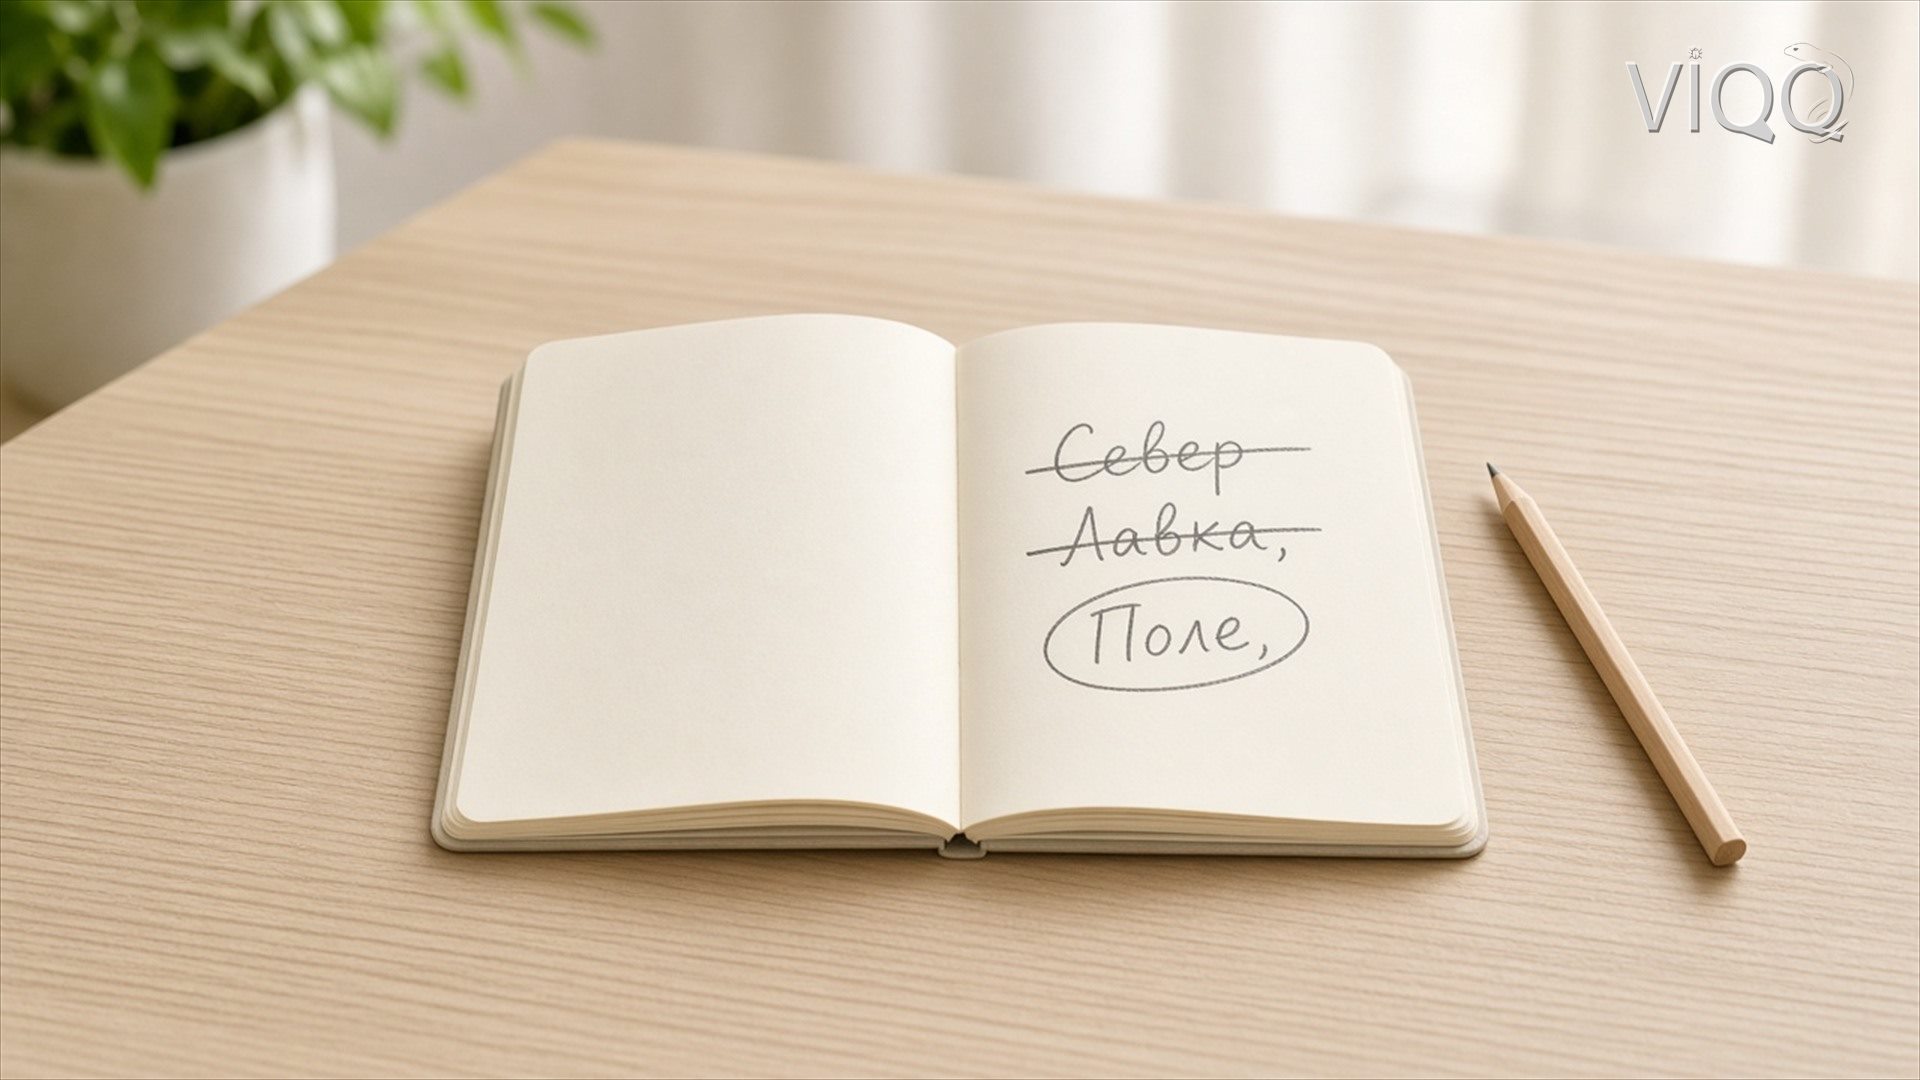 VIQQ
Север
Лавка,
Поле,